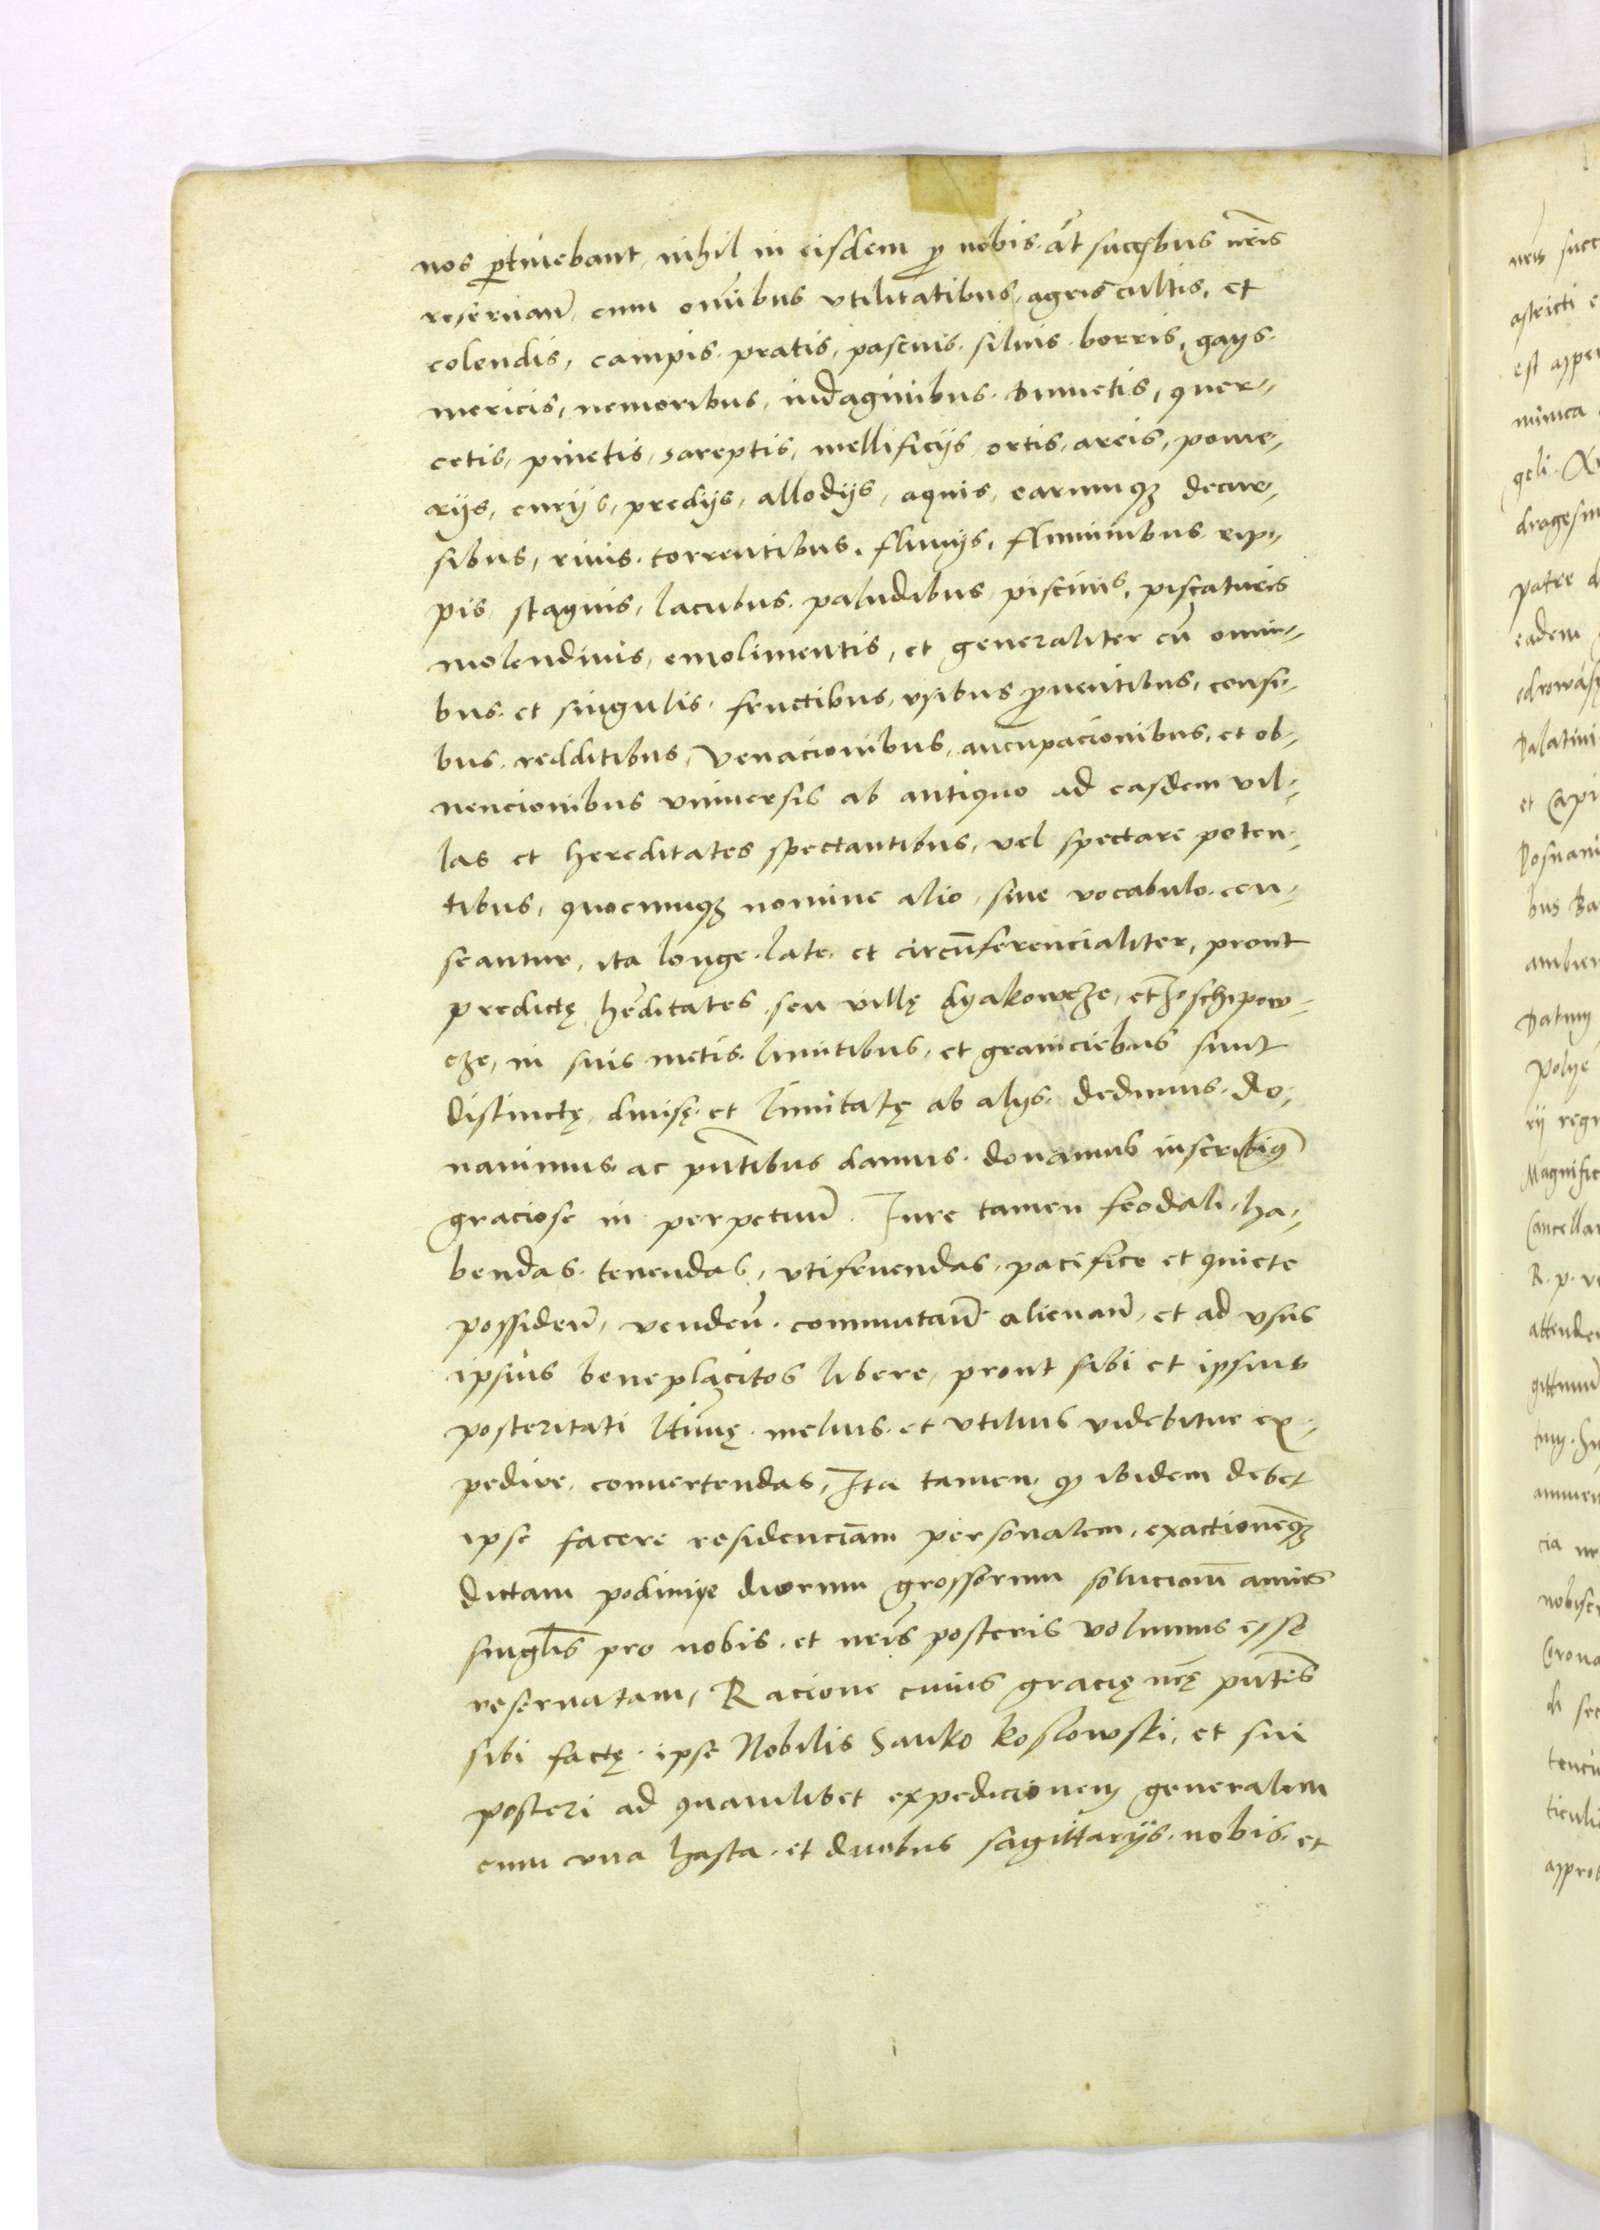 nos ptinebant, nihil in eisdem p nobis aut succsbus nris
reseruan̄, cum omībus vtilitatibus, agris cultis, et
colendis, campis, pratis, pascuis, siluis, borris, gays
mericis, nemoribus, indaginibus, dumetis, quer-
cetis, pinetis, sareptis, mellificijs, ortis, areis, pome-
rijs, curijs, predijs, allodijs, aquis, earumqꝫ decur-
sibus, riuis, torrentibus, fluuijs, fluminibus rip-
pis, stagnis, lacubus, paludibus, piscinis, piscaturis
molendinis, emolimentis, et generaliter cū omni-
bus et singulis, fructibus, vsibus puentibus, censi-
bus, redditibus, venacionibus, aucupacionibus, et ob-
uencionibus vniuersis ab antiquo ad easdem vil-
las et hereditates spectantibus, vel spectare poten-
tibus, quocumqꝫ nomine alio, siue vocabulo cen-
seantur, ita longe late et circūferencialiter, prout
predictę hēditates seu villę dyakowcze, et Joschipow-
cze, in suis metis limitibus, et graniciebus sunt
distinctę, diuisę et limitatę ab alys. dedimus do-
nauimus ac pntibus damus donamus inscribimꝰ
graciose in perpetuū. Jure tamen feodali, ha-
bendas tenendas, vtifruendas, pacifice et quiete
possiden̄, venden̄ commutan̄ alienan̄, et ad vsus
ipsius beneplacitos libere, prout sibi et ipsius
posteritati ltimę melius et vtilius videbitur ex-
pedire, conuertendas, Ita tamen qꝫ ibidem debet
ipse facere residenciam personalem, exactionēqꝫ
dictam podimye duorum grossorum solucionū annis
singlis pro nobis et nris posteris volumus esse
reseruatam, Racione cuius gracię nrę pntis
sibi factę ipse Nobilis Sanko Koslowski, et sui
posteri ad quamlibet expedicionem generalem
cum vna hasta et duobus sagittarijs nobis et